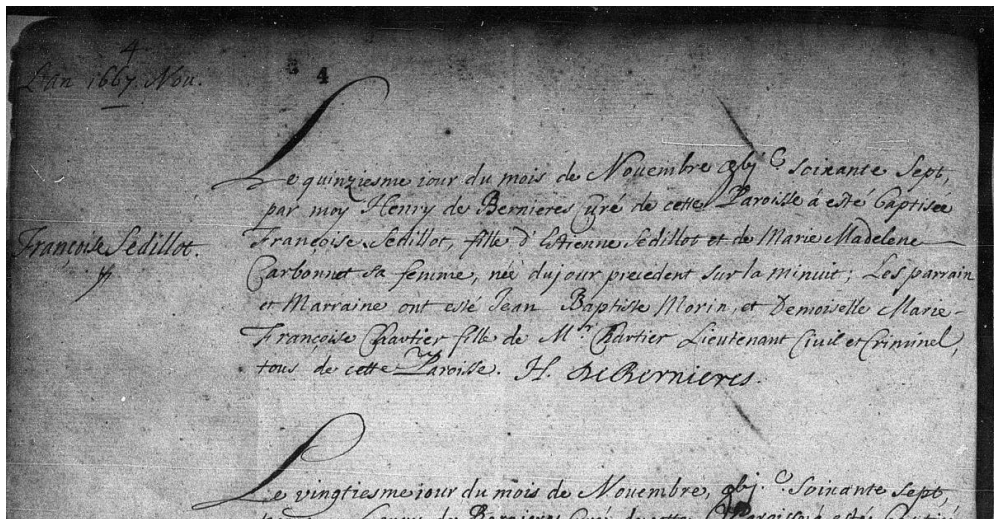 L'an 1667. Nou.
4
Le quinziesme iour du mois de Nouembre gbj C soixante Sept,
par moy Henry de Bernieres Curé de cette Paroisse à esté baptisée
Françoise Sedillot.
Françoise Sedillot, fille d'Estienne Sedillot et de Marie Madelene
Carbonnet sa femme, née du jour precedent sur la minuit; Les parrain
et Marraine ont esté Jean Baptiste Morin, et Demoiselle Marie-
Françoise Chartier fille de Mr. Chartier Lieutenant Civil et Criminel,
tous de cette Paroisse. H. De Bernieres.
Le vingtiesme iour du mois de Nouembre, gbj. C Soixante Sept,
de Bernieres Curé de cette Paroisse a esté